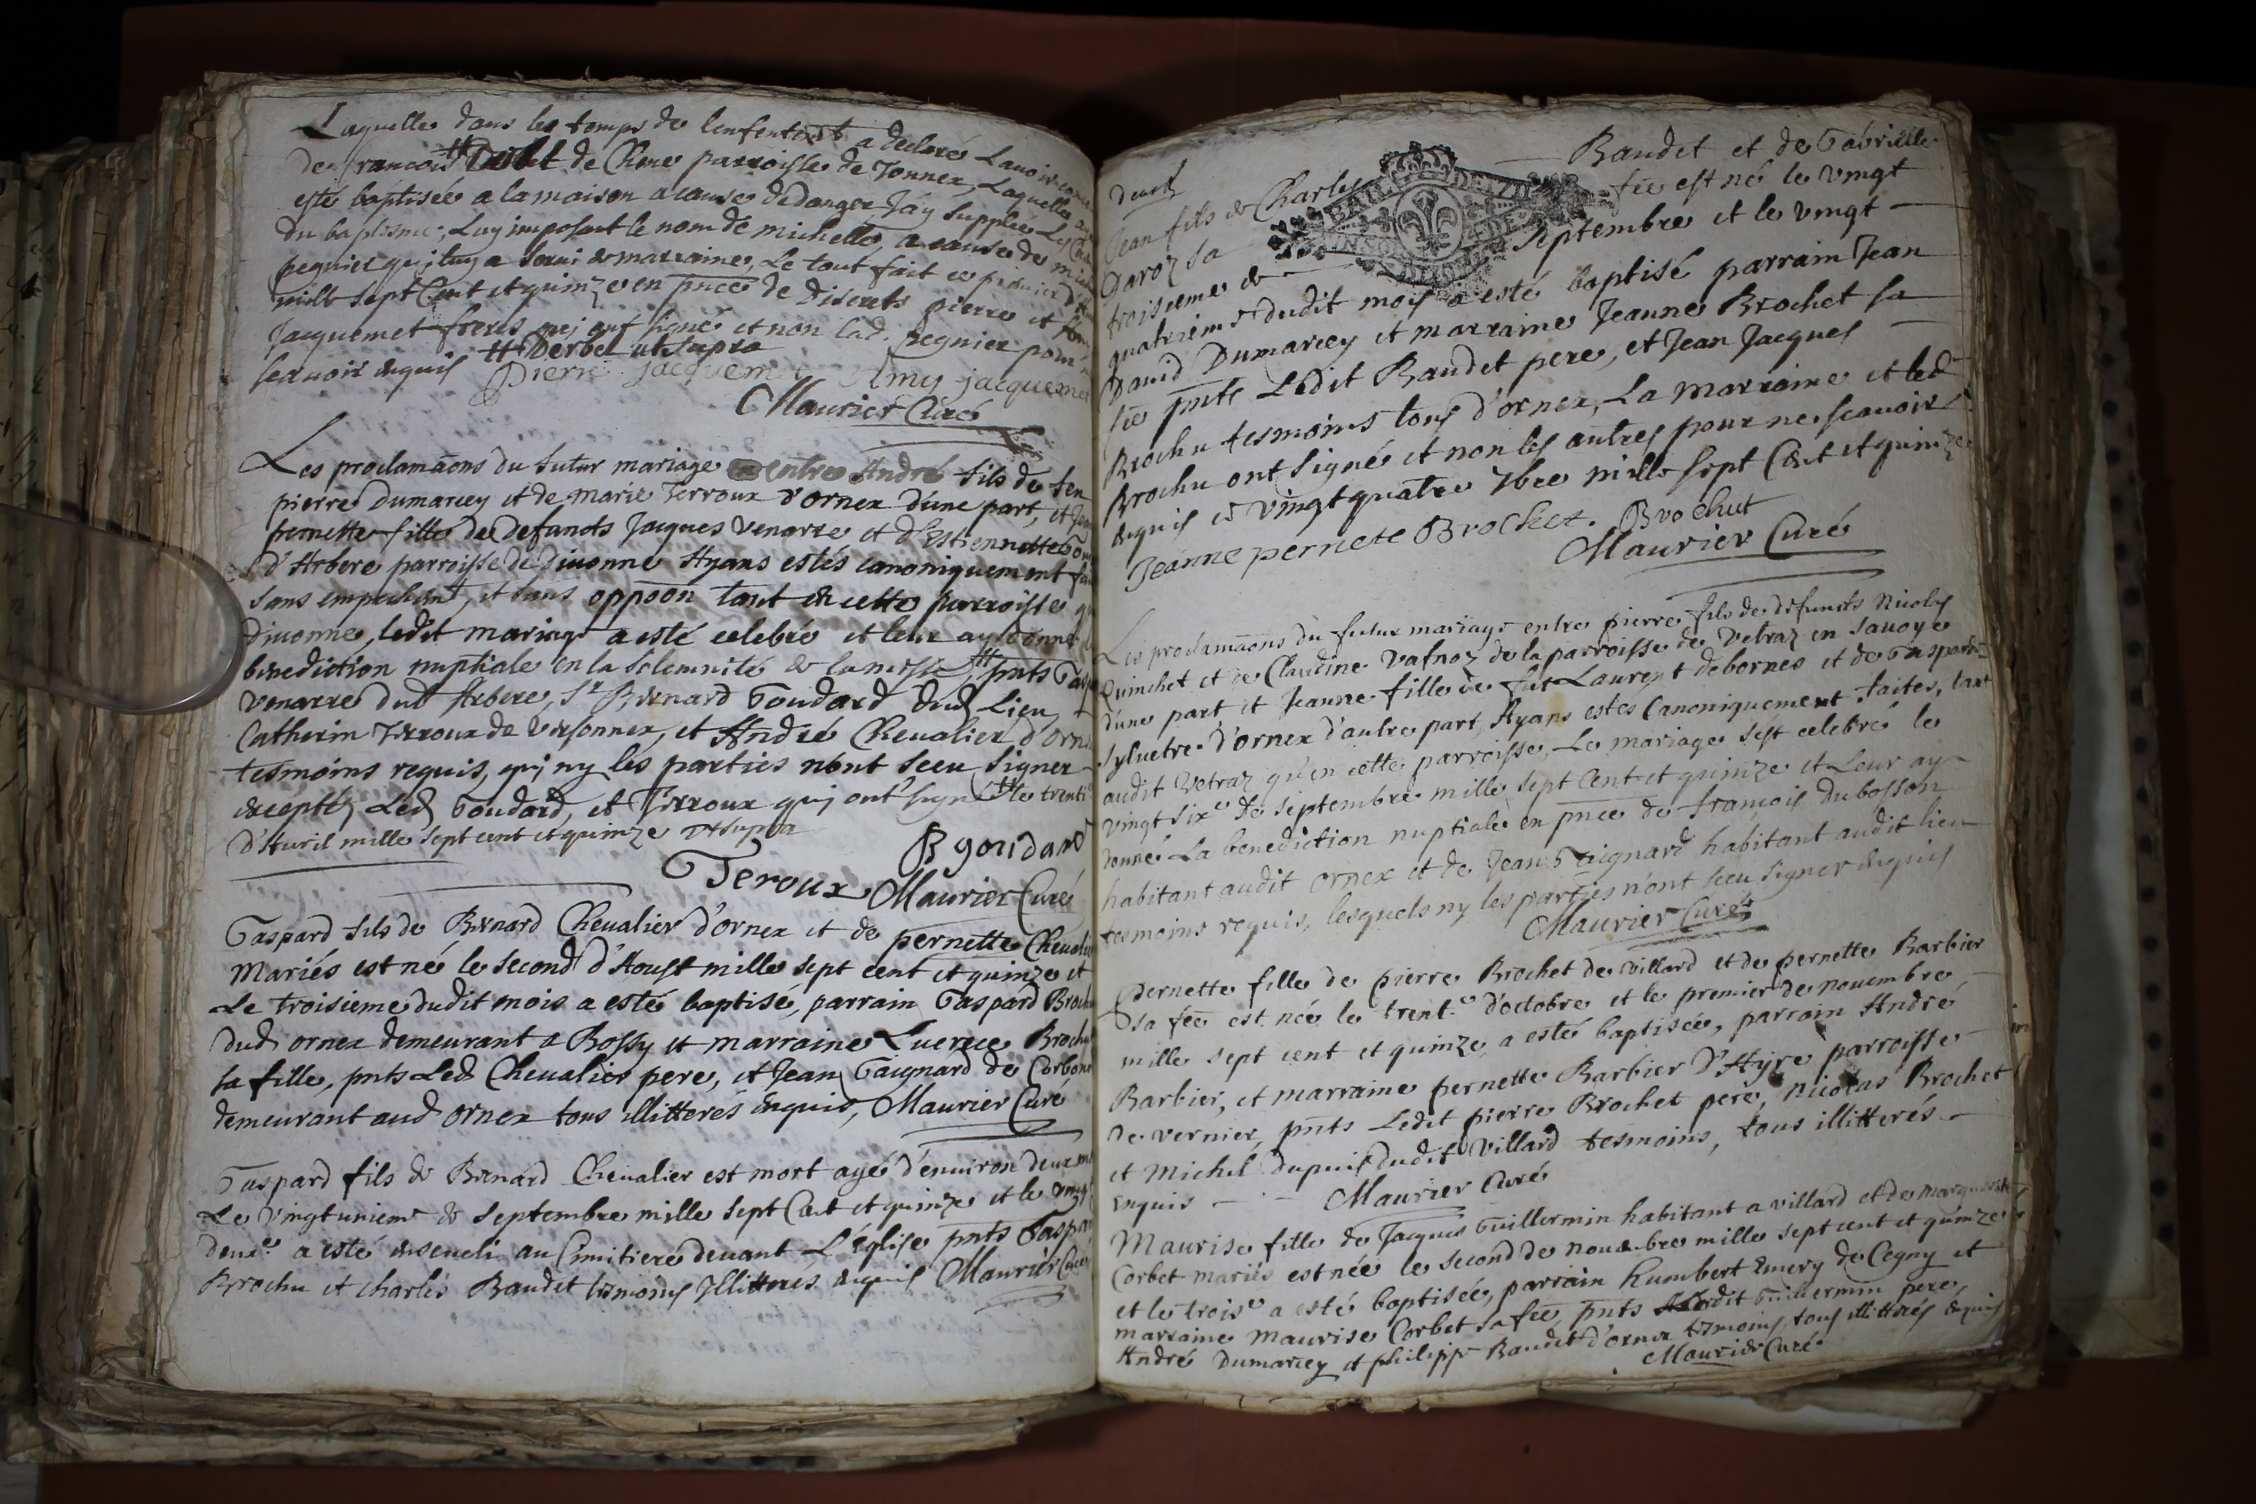 Laquelle dans les temps de lenfentemt a declaré Lavoir
de francois de Chene parroisse de Tonnex, Laquelle a
esté baptisée a la maison a cause de danger Jay supplée Les
du baptisme, Luy imposant le nom de michelle, a cause de
pegnier quj luy a servi de marraine, Le tout fait ce premier
mille sept Cent et quinze en pnce de discrets pierre et
Jacquemet freres quj ont signé et non lad. pegnier pour n
scavoir enquis # Derbel ut supra
Pierre Jacquem Amy jacquemet
Maurier Curé
Les proclamãons du futur mariage entre André fils de feu
pierre Dumarcey et de marie Terroux d'ornex d'une part, et
pernette fille de defuncts Jacques Venarre et d'Estiennette
d'Arbere parroisse de divonne Ayans estés canoniquement
sans empechemt, et sans oppõon tant en cette parroisse
divonne, ledit mariage a esté celebré et leur ay donné
benediction nuptiale en la solemnité de la messe # pnts
Venarre dud Arbere, Sr Bernard Goudard dud Lieu
Catherin Terroux de versonnex, et André Chevalier d'orn
tesmoins requis, quj ny les parties n'ont sceu signer
exceptéz Led Goudard, et Terroux quj ont signé # le trenti
d'Avril mille sept cent et quinze ut supra
B goudard
Teroux Maurier Curé
Gaspard fils de Bernard Chevalier d'ornex et de pernette
Mariés est né le second d'Aoust mille sept cent et quinze et
Le troisieme dudit mois a esté baptisé, parrain Gaspard Broch
dud ornex demeurant a Bossy et marraine Lucrece Broch
sa fille, pnts Led Chevalier pere, et Jean Gaignard de
demeurant aud ornex tous illitterés enquis, Maurier Curé
Gaspard fils de Bernard Chevalier est mort agé d'environ deux
Le vingtuniem de septembre mille sept Cent et quinze et le vingt
deuxe a esté enseveli au Cimitiere devant L'église pnts Gaspa
Brochu et charles Baudet tesmoins Illitterés enquis Maurier Curé
deux s
BAIL
Jean fils de Charles Baudet et de Gabrielle
Daroz sa fẽe est né le vingt
troisieme de septembre et le vingt
quatriem dudit mois a esté baptisé parrain Jean
David Dumarcey et marraine Jeanne Brochet sa
fẽe pnts Ledit Baudet pere, et Jean Jacques
Brochu tesmoins tous d'ornex, La marraine et led
Brochu ont signé et non les autres pour ne scavoir
enquis ce vingt quatre 7bre mille sept Cent et quinze
Jeanne pernete Brochet. Brochut
Maurier Curé
Les proclamãons du futur mariage entre pierre fils de defuncts Nicolas
Quinchet et de Claudine Vafnoz de la parroisse de Vetraz en Savoye
d'une part et Jeanne fille de fut Laurent debornes et de Gasparde
Sylvetre d'ornex d'autre part, Ayans estés Canoniquement faites, tant
audit Vetraz qu'en cette parroisse, Le mariage s'est celebré le
vingt sixe de septembre mille sept Cent et quinze et Leur ay
donné La benediction nuptiale en pnce de françois dubosson
habitant audit ornex et de Jean Gaignard habitant audit lieu
tesmoins requis, lesquels ny les parties n'ont sceu signer enquis
Maurier Curé
Pernette fille de pierre Brochet de villard et de pernette Barbier
sa fẽe est née le trente d'octobre et le premier de novembre
mille sept cent et quinze a esté baptisée, parrain André
Barbier, et marraine pernette Barbier d'Ayre parroisse
de vernier, pnts Ledit pierre Brochet pere, nicolas Brochet
et Michel Dupuis dudit Villard tesmoins, tous illitterés
enquis Maurier Curé
Maurise fille de Jacques Guillermin habitant a villard et de marguerite
Corbet mariés est née le second de novembre mille sept cent et quinze
et le troise a esté baptisée, parrain humbert Emery de Cegny et
marraine Maurise Corbet sa fẽe, pnts Ledit Guillermin pere,
André Dumarcey et philippe Baudet d'ornex tesmoins, tous illitterés enquis
Maurier Curé